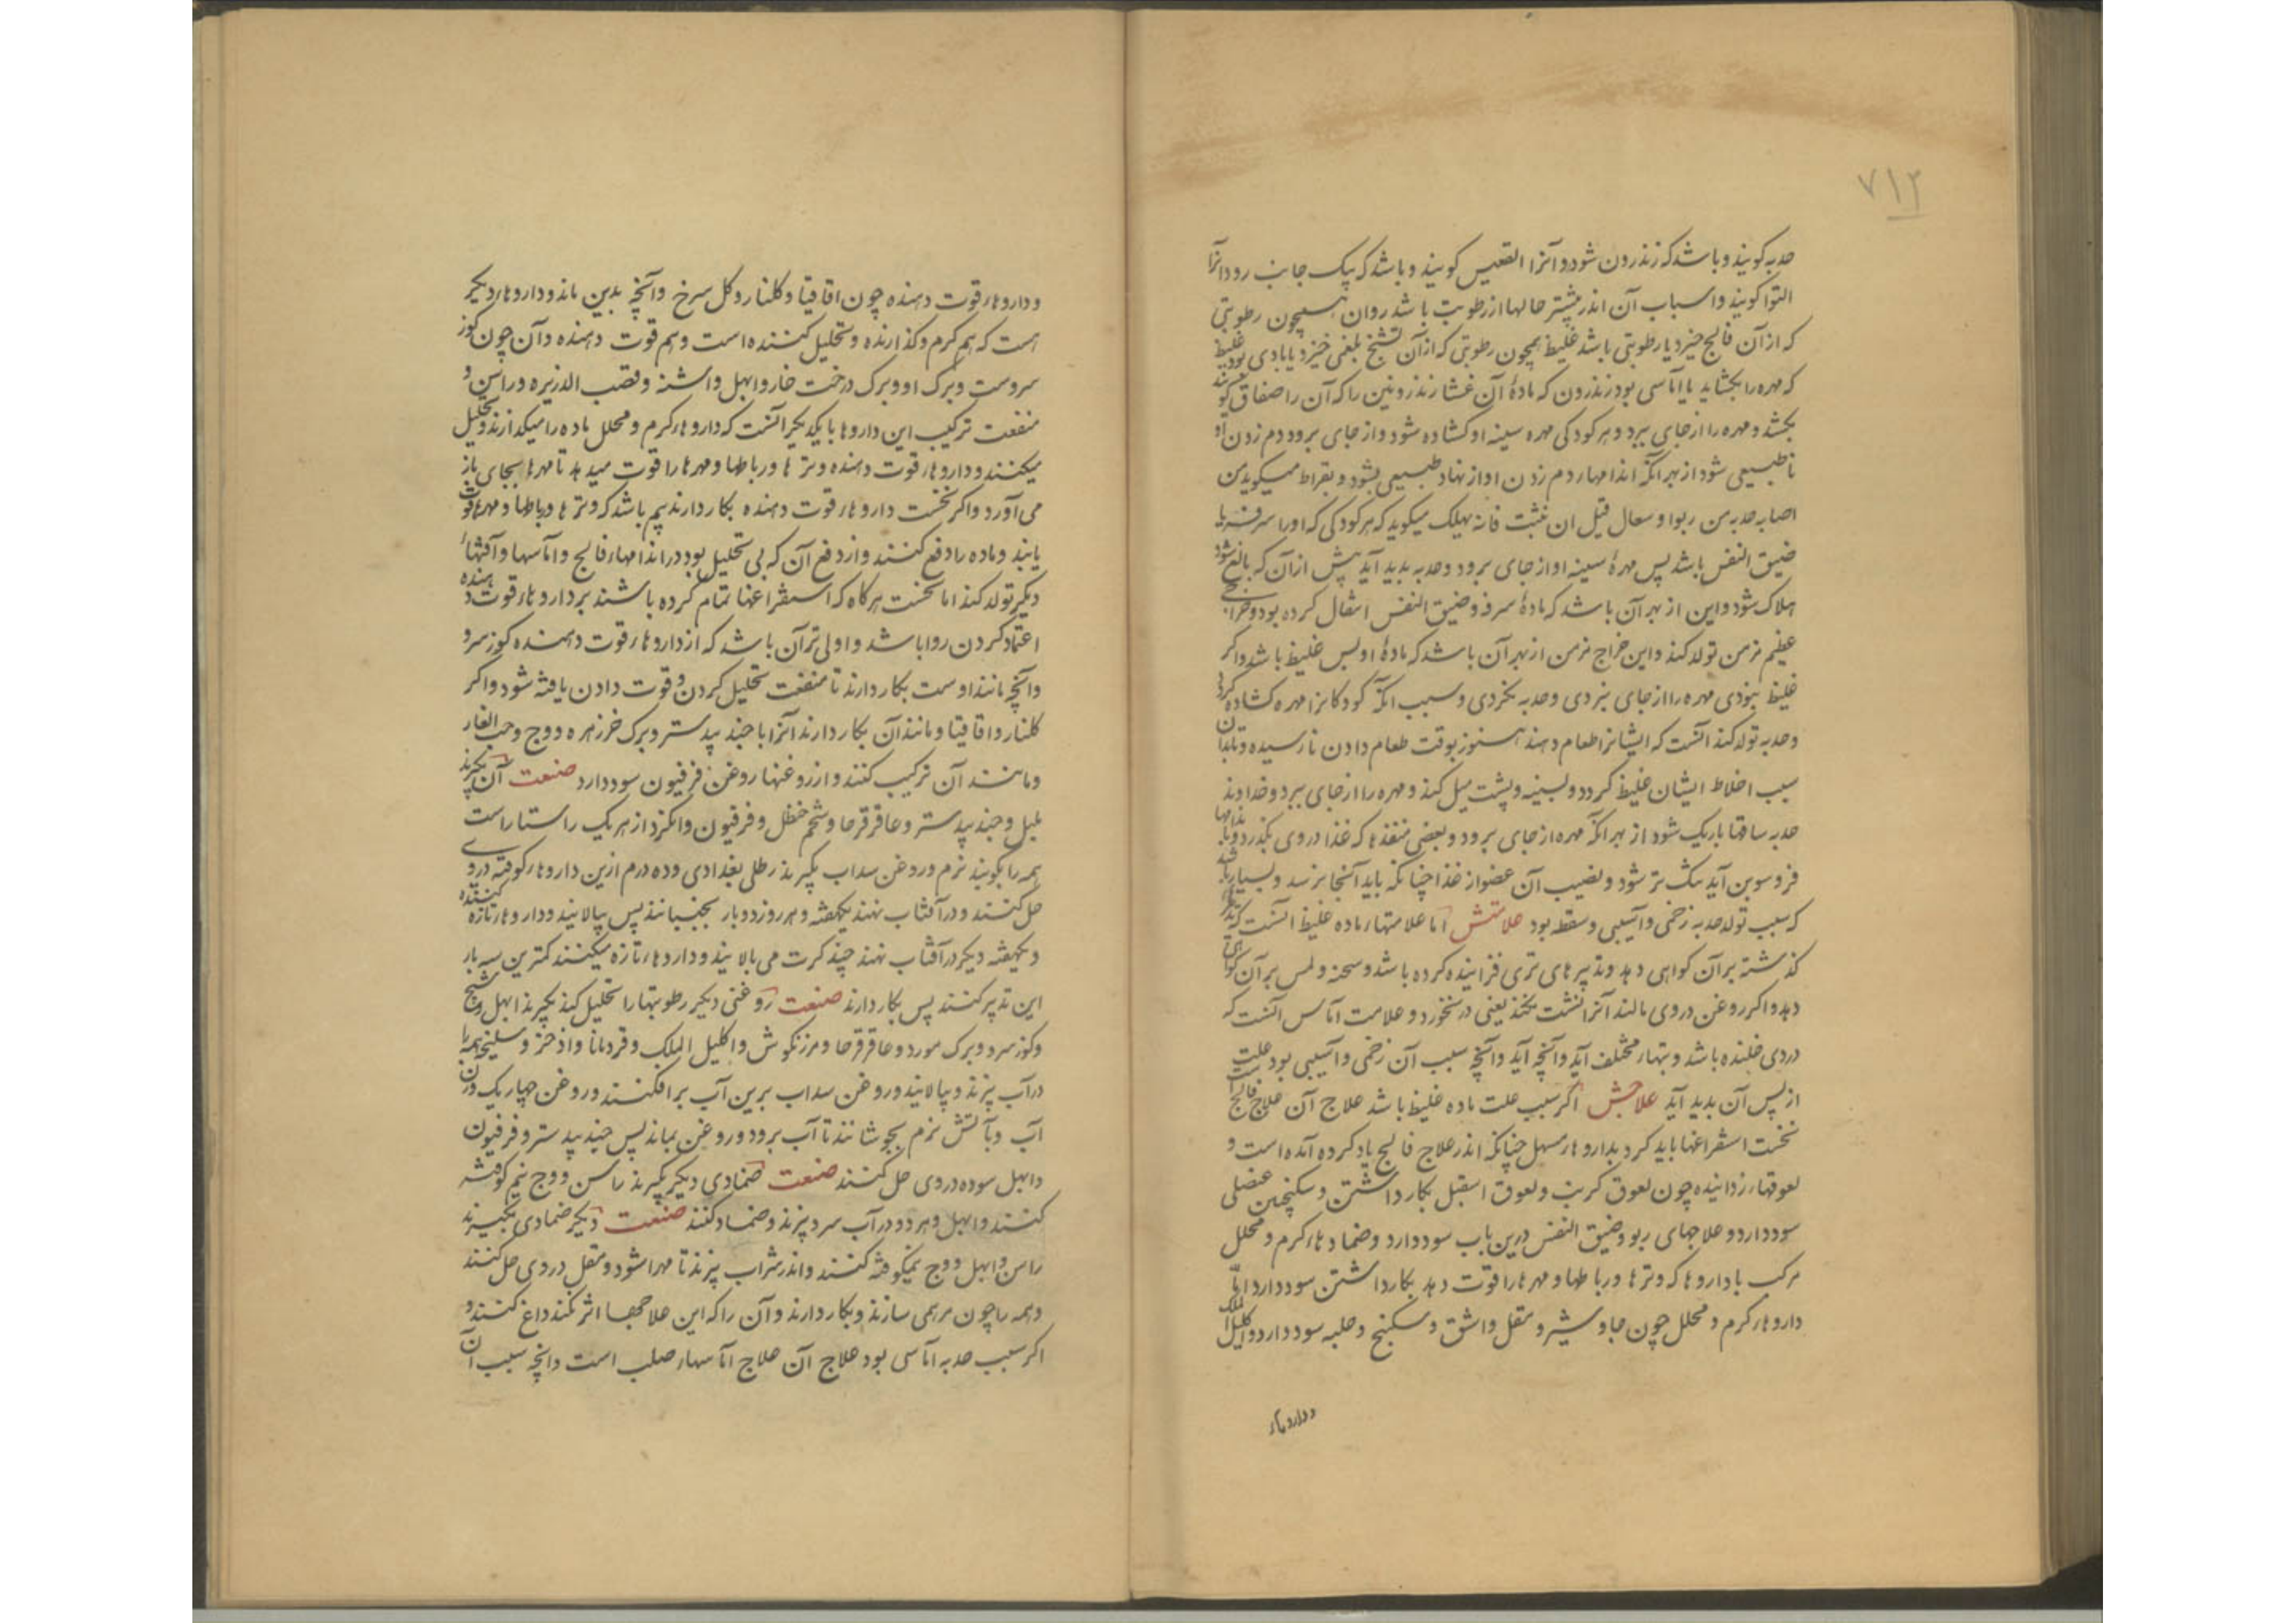 ٧١٢
حدبه کویند و باشد که زندرون شود و آنرا القعیس کویند و باشد که بیک جانب رود آنرا
التوا کویند و اسباب آن اندر بیشتر حالها از رطوبت باشد روان همچون رطوبتی
که از آن فالج خیزد یا رطوبتی باشد غلیظ همچون رطوبتی که از آن تشنج بلغمی خیزد یا بادی بود غلیظ
که مهره را بجنباند یا آماسی بود زندرون که مادهٔ آن غشا زندرونین را که آن را صفاق کویند
بکشد و مهره را از جای ببرد و هر کودکی مهره سینه او کشاده شود و از جای برود دم زدن او
ناطبیعی شود از بهر آنکه اندامهاء دم زدن او از نهاد طبیعی بشود و بقراط میکوید من
اصابه حدبه من ربو او سعال قبل ان ینبت فانه یهلک میکوید که هر کودکی که او را سرفه یا
ضیق النفس باشد پس مهرهٔ سینه او از جای برود و حدبه بدید آید پیش از آن که بالغ شود
هلاک شود و این از بهر آن باشد که مادهٔ سرفه و ضیق النفس انتقال کرده بود و خراجی
عظیم مزمن تولد کند و این خراج مزمن از بهر آن باشد که مادهٔ او بس غلیظ باشد و اکر
غلیظ نبودی مهره را از جای نبردی و حدبه نکردی و سبب آنکه کودکانرا مهره کشاده کردد
و حدبه تولد کند آنست که ایشانرا طعام دهند هنوز بوقت طعام دادن نارسیده و تا بدان
سبب اخلاط ایشان غلیظ کردد و بسینه و پشت میل کند و مهره را از جای ببرد و خداوند
حدبه ساقها باریک شود از بهر آنکه مهره از جای برود و بعضی منفذها که غذا در وی بکذرد و باندامها
فروسوین آید تنک تر شود و نصیب آن عضو از غذا چنانکه باید آنجا نرسد و بسیار باشد
که سبب تولد حدبه زخمی و آسیبی و سقطه بود علامتش اما علامتهاء ماده غلیظ آنست که تدبیر
کذشته بر آن کواهی دهد و تدبیرهای تری فزاینده کرده باشد و سحنه و لمس بر آن کواهی
دهد و اکر روغن در وی مالند آنرا نشف نکند یعنی در نخورد و علامت آماس آنست که
دردی خلنده باشد و تبهاء مختلف آید و آنچه آید و آنچه سبب آن زخمی و آسیبی بود علت
از پس آن بدید آید علاجش اکر سبب علت ماده غلیظ باشد علاج آن علاج فالج است
نخست استفراغها باید کرد بداروهاء مسهل چنانکه اندر علاج فالج یاد کرده آمده است و
لعوقهاء زداینده چون لعوق کرنب و لعوق اسقیل بکار داشتن و سکنجبین عنصلی
سود دارد و علاجهای ربو و ضیق النفس درین باب سود دارد و ضمادهاء کرم و محلل
مرکب با داروها که وترها و رباطها و مهرها را قوت دهد بکار داشتن سود دارد اما
داروهاء کرم و محلل چون جاوشیر و مقل و اشق و سکبینج و حلبه سود دارد و اکلیل الملک
و داروهاء
و داروهاء قوت دهنده چون اقاقیا و کلنار و کل سرخ و آنچه بدین ماند و داروهاء دیکر
هست که هم کرم و کدازنده و تحلیل کننده است و هم قوت دهنده و آن چون کوز
سروست و برک او و برک درخت غار و ابهل و اشنه و قصب الذریره و راسن و
منفعت ترکیب این داروها با یکدیکر آنست که داروهاء کرم و محلل ماده را میکدازند و تحلیل
میکنند و داروهاء قوت دهنده وترها و رباطها و مهرها را قوت میدهد تا مهرها بجای باز
می آورد و اکر نخست داروهاء قوت دهنده بکار دارند بیم باشد که وترها و رباطها و مهرها قوت
یابند و ماده را دفع کنند و از دفع آن که بی تحلیل بود در اندامهاء فالج و آماسها و آفتهاء
دیکر تولد کند اما نخست هر کاه که استفراغها تمام کرده باشند بر داروهاء قوت دهنده
اعتماد کردن روا باشد و اولی تر آن باشد که از داروهاء قوت دهنده کوز سرو
و آنچه مانند اوست بکار دارند تا منفعت تحلیل کردن و قوت دادن یافته شود و اکر
کلنار و اقاقیا و مانند آن بکار دارند آنرا با جند بیدستر و برک خرزهره و وج و حب الغار
و مانند آن ترکیب کنند و از روغنها روغن فرفیون سود دارد صنعت آن بکیرند
پلپل و جند بیدستر و عاقرقرحا و شحم حنظل و فرفیون و انکزد از هر یک راستا راست
همه را بکوبند نرم و روغن سداب بکیرند رطلی بغدادی و ده درم ازین داروهاء کوفته در وی
حل کنند و در آفتاب نهند یکهفته و هر روز دو بار بجنبانند پس بپالایند و داروهاء تازه کنند
و یکهفته دیکر در آفتاب نهند چند کرت می پالایند و داروهاء تازه میکنند کمترین سه بار
این تدبیر کنند پس بکار دارند صنعت روغنی دیکر رطوبتها را تحلیل کند بکیرند ابهل و شیح
و کوز سرو و برک مورد و عاقرقرحا و مرزنکوش و اکلیل الملک و قردمانا و اذخر و سلیخه همه را
در آب بپزند و بپالایند و روغن سداب برین آب برافکنند و روغن چهار یک وزن
آب و بآتش نرم بجوشانند تا آب برود و روغن بماند پس جند بیدستر و فرفیون
و ابهل سوده در وی حل کنند صنعت ضمادی دیکر بکیرند راسن و وج نیم کوفته
کنند و ابهل و هر دو در آب سرو بپزند و ضماد کنند صنعت دیکر ضمادی بکیرند
راسن و ابهل و وج نیمکوفته کنند و اندر شراب بپزند تا مهرا شود و مقل در وی حل کنند
و همه را چون مرهمی سازند و بکار دارند و آن را که این علاجها اثر نکند داغ کنند و
اکر سبب حدبه آماسی بود علاج آن علاج آماسهاء صلب است و آنچه سبب آن